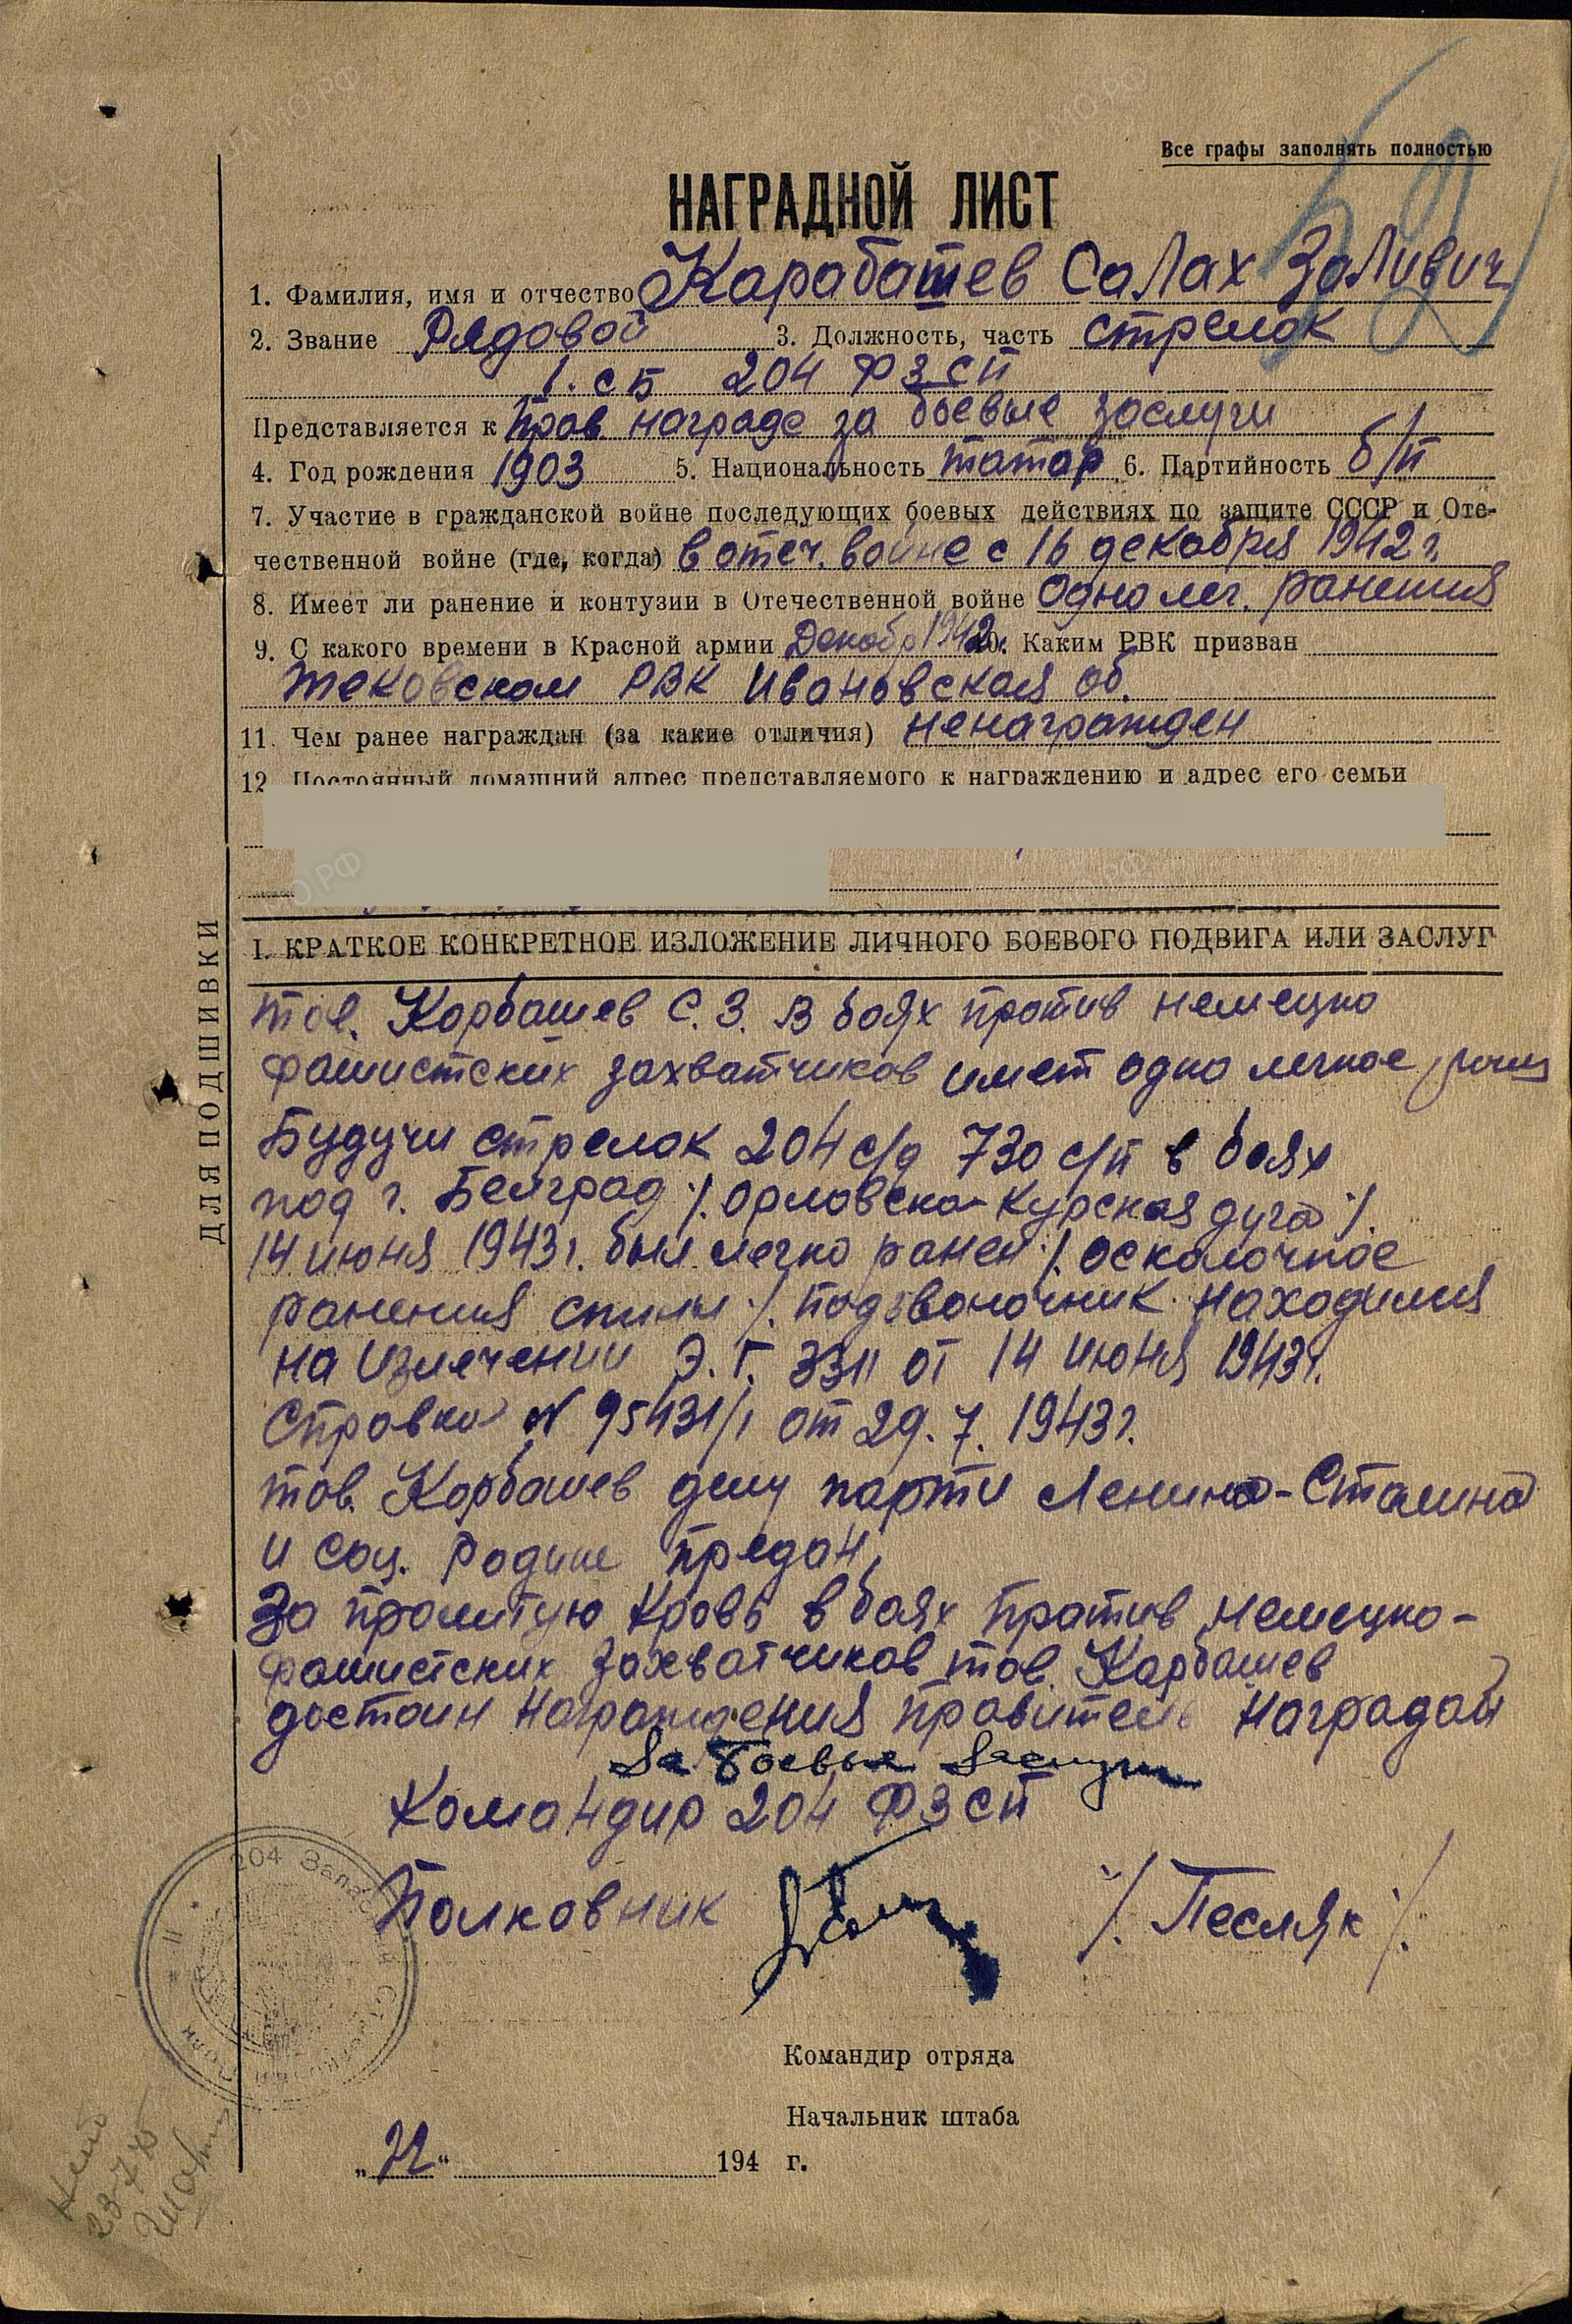 Все графы заполнять полностью
НАГРАДНОЙ ЛИСТ
1. Фамилия, имя и отчество Карабашев Салах Заливич
2. Звание Рядовой 3. Должность, часть стрелок
1. сб 204 ФЗСП
Представляется к прав. награде за боевые заслуги
4. Год рождения 1903 5. Национальность татар 6. Партийность б/п
7. Участие в гражданской войне последующих боевых действиях по защите СССР и Оте-
чественной войне (где, когда) в отеч. войне с 16 декабря 1942 г.
8. Имеет ли ранение и контузии в Отечественной войне одно лег. ранения
9. С какого времени в Красной армии Декабр 1942 10. Каким РВК призван
Тековском РВК Ивановская об.
11. Чем ранее награждан (за какие отличия) ненагражден
12 Постоянный домашний адрес представляемого к награждению и адрес его семьи
I. КРАТКОЕ КОНКРЕТНОЕ ИЗЛОЖЕНИЕ ЛИЧНОГО БОЕВОГО ПОДВИГА ИЛИ ЗАСЛУГ
ДЛЯ ПОДШИВКИ
тов. Карбашев С. З. В боях против немецко
фашистских захватчиков имеет одно легкое
Будучи стрелок 204 с/д 730 с/п в боях
под г. Белград /. Орловско-Курская дуга /.
14 июня 1943 г. был легко ранен /. осколочное
ранения спины /. подзвоночник. находился
на излечении Э. Г. 3311 от 14 июня 1943 г.
Справка N 95431/1 от 29. 7. 1943 г.
тов. Карбашев делу парти Ленина-Сталина
и соц. Родине предан,
За пролитую кровь в боях против немецко-
фашистских захватчиков тов. Карбашев
достоин награждения правител наградой
За Боевые Заслуги
Командир 204 ФЗСП
Полковник /. Песляк /.
204 Запасной Стрелковый Полк
Командир отряда
Начальник штаба
" " 194 г.